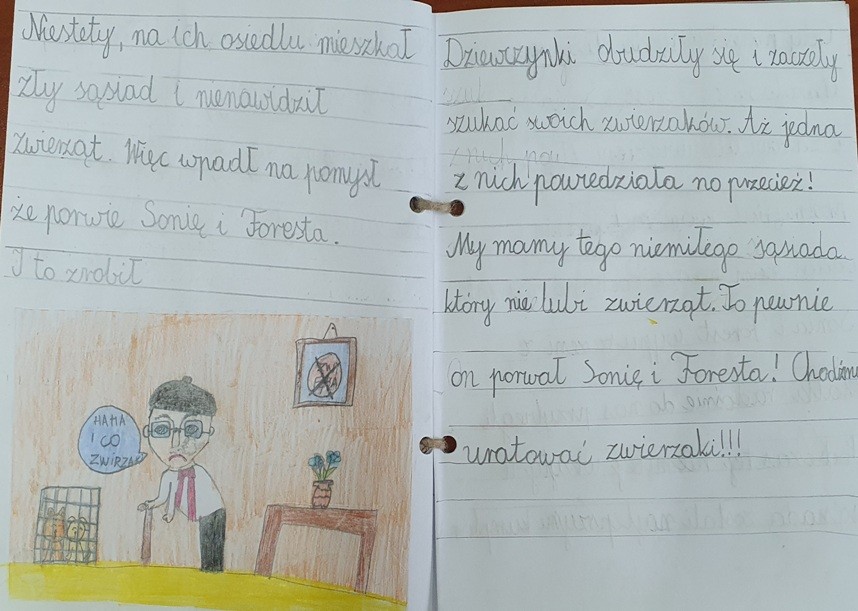 Niestety, na ich osiedlu mieszkał
zły sąsiad i nienawidził
zwierząt. Więc wpadł na pomysł
że porwie Sonię i Foresta.
I to zrobił
HAHA
I CO
ZWIRZAKI
Dziewrzynki obudziły się i zaczeły
szukać swoich zwierzaków. Aż jedna
z nich powiedziała no przecież!
My mamy tego niemiłego sąsiada
który nie lubi zwierząt. To pewnie
On porwał Sonię i Foresta! Chodźmy
uratować zwierzaki!!!